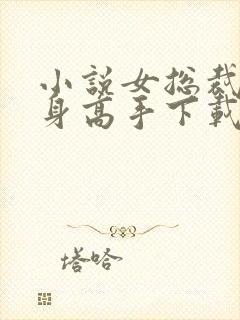 小說女总裁
身高手下載
塔哈